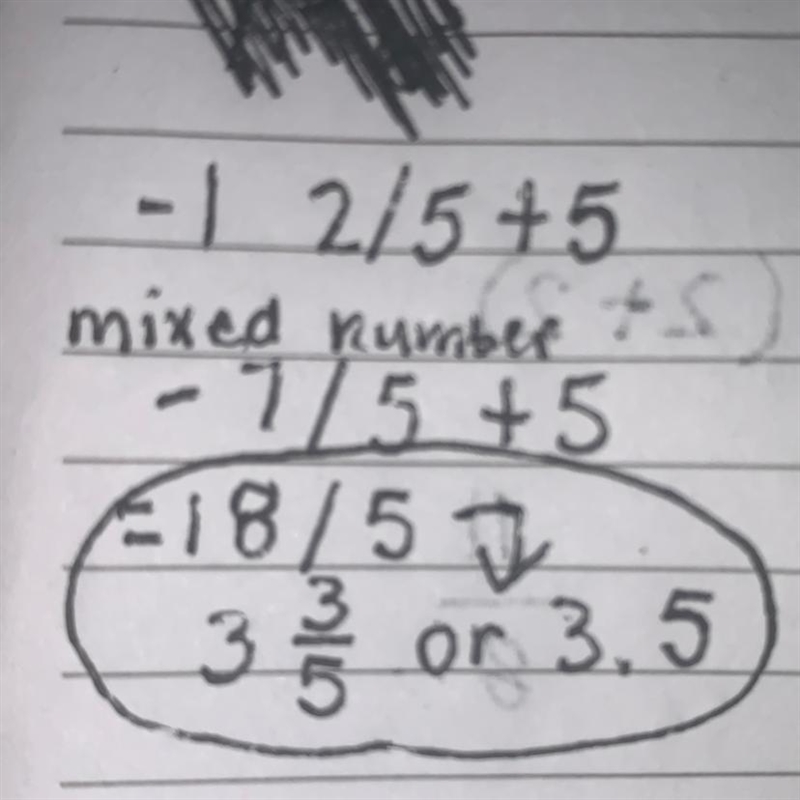 -1 2/5+5
mixed number
-7/5+5
=18/5
3 3/5 or 3.5